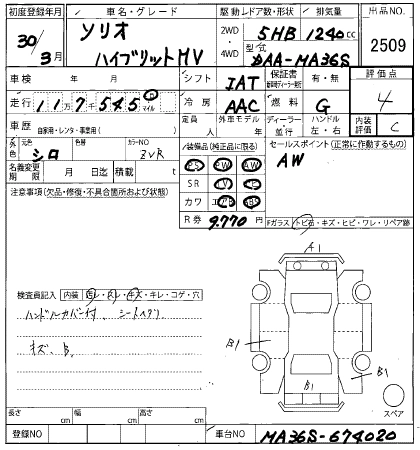 初度登録年月 車名・グレード 駆動 ドア数・形状 排気量 出品NO.
30年3月 ソリオ ハイブリットMV 2WD 5HB 1240cc 2509
4WD 型式 DAA-MA36S
車検 年 月 シフト IAT 保証書 有・無 評価点
走行 117千545 マイル 冷房 AAC 燃料 G 4
車歴 自家用・レンタ・事業用( ) 定員 人 外車モデル 年 ディーラー 並行 ハンドル 左・右 内装評価 C
外色 元色 シロ 色替 カラーNO ZVR 装備品(純正品に限る) セールスポイント(正常に動作するもの)
PS PW AW AW
名義変更期限 月 日迄 積載 t SR
注意事項(欠品・修復・不具合箇所および状態) カワ エアB ABS
R券 9.770円 Fガラス トビ石・キズ・ヒビ・ワレ・リペア跡
A1
検査員記入 内装 汚レ・スレ・キズ・キレ・コゲ・穴
ハンドルカバー付、シートヘタリ
キズ、B.
B1
B1
B1
スペア
長さ cm 幅 cm 高さ cm
登録NO 車台NO MA36S-674020